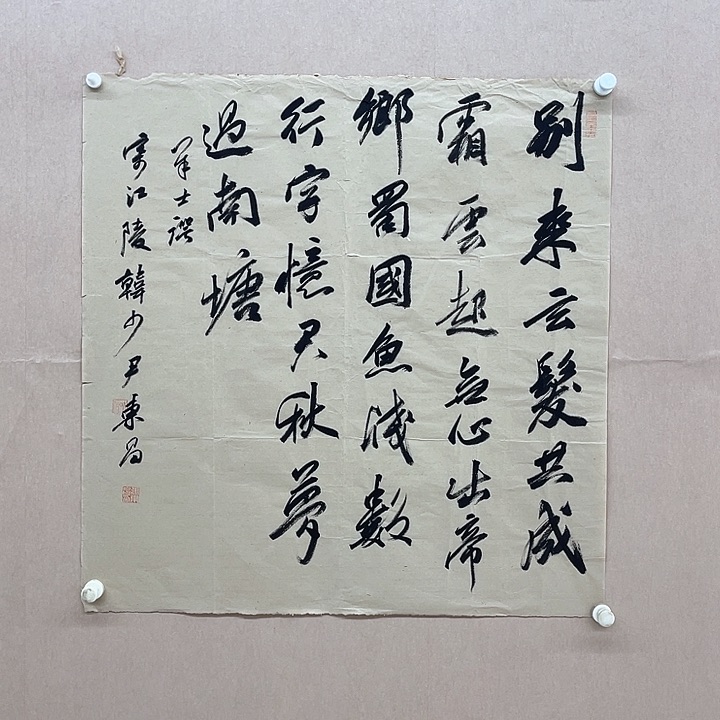 別來玄髮共成
霜雲起無心出帝
鄉蜀國魚淺數
行字憶君秋夢
過南塘
羊士諤
寄江陵韓少尹東昌